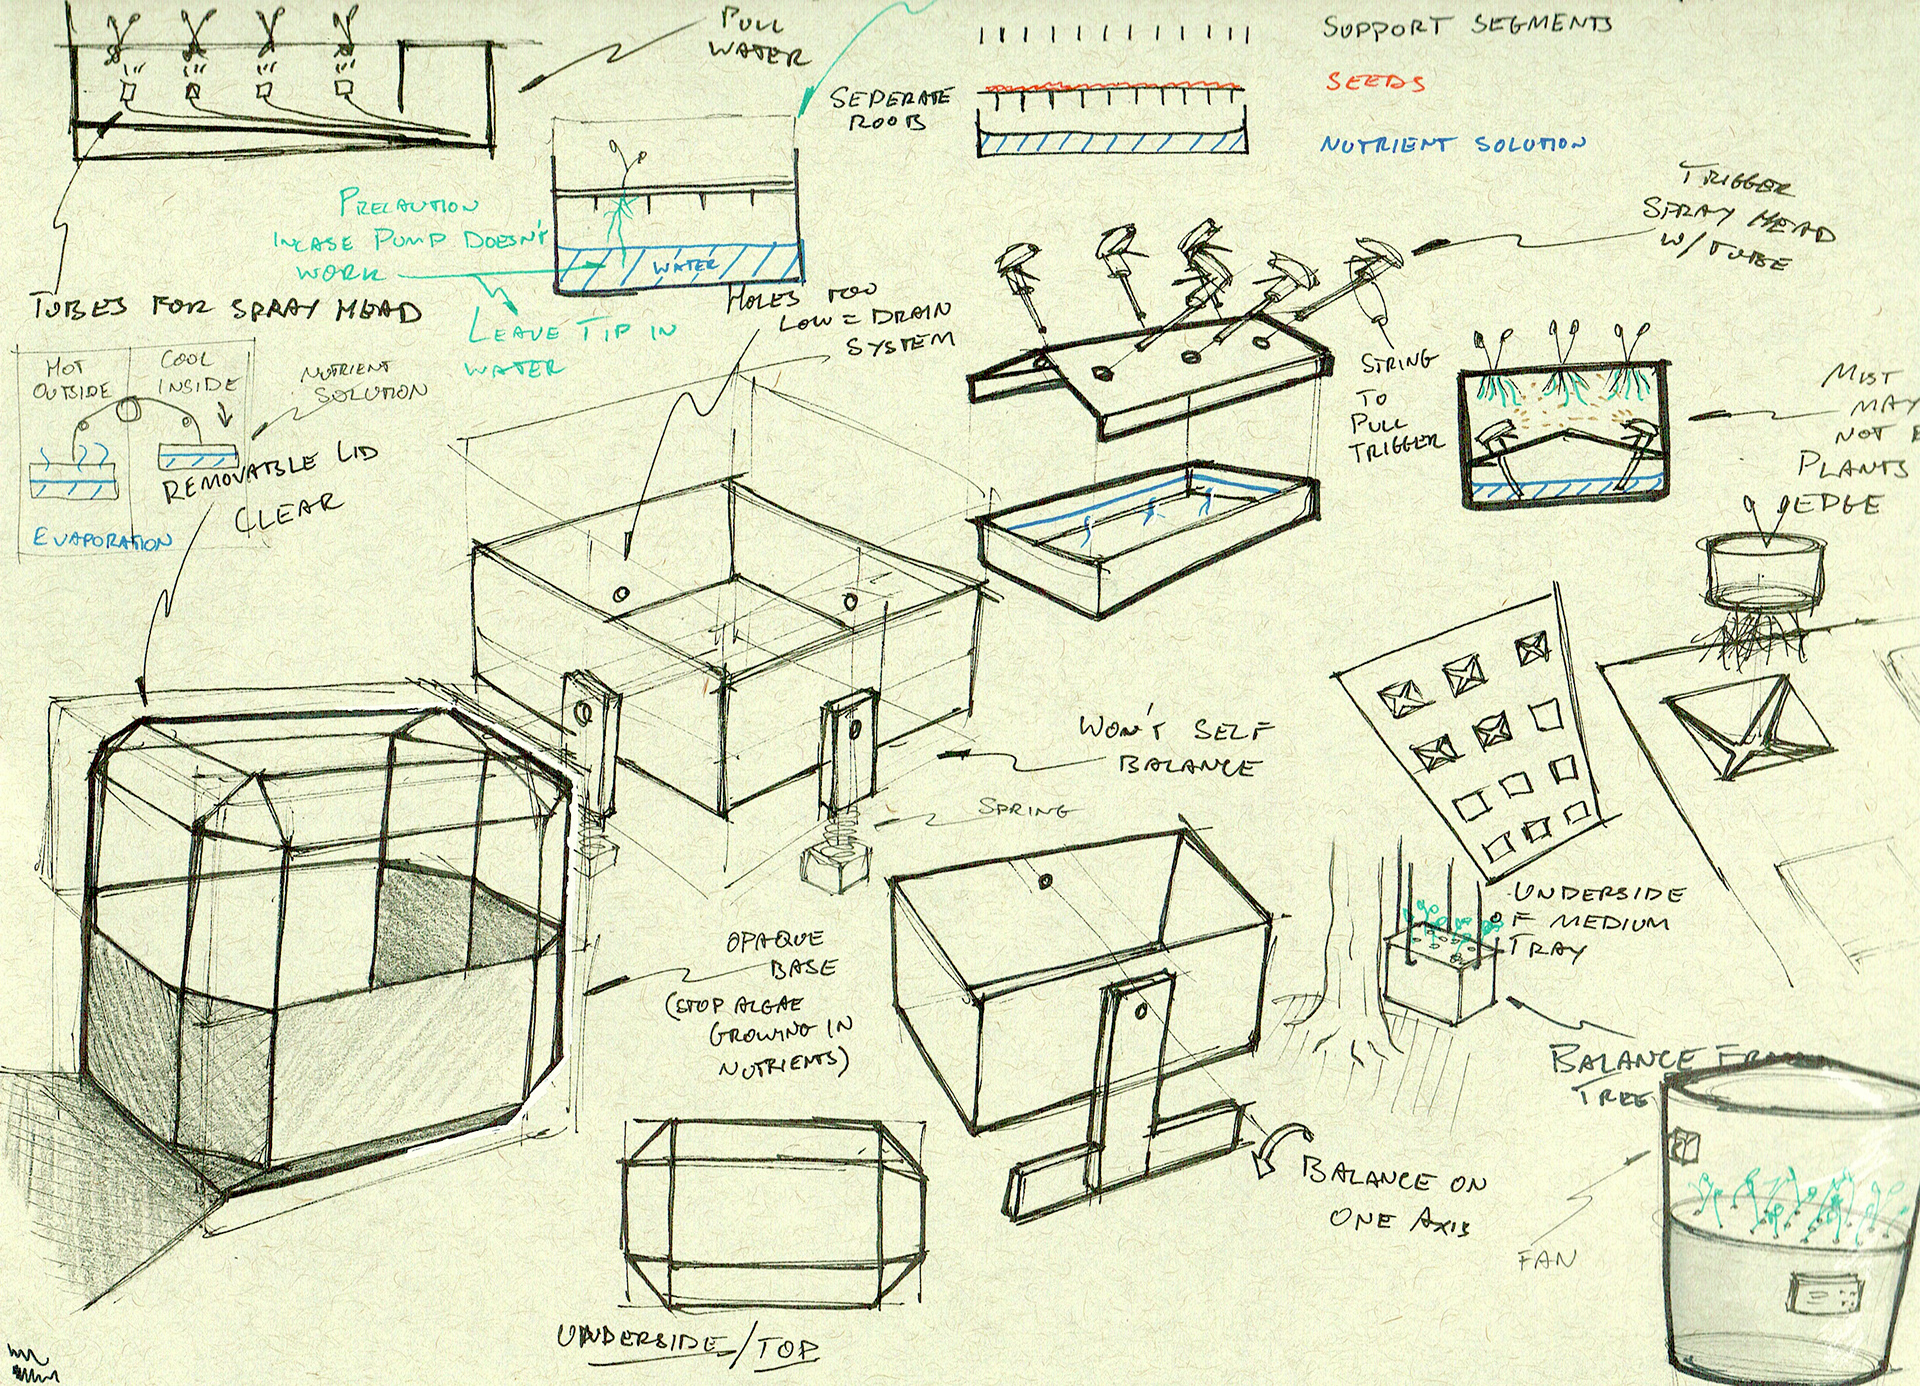 PULL
WATER
SUPPORT SEGMENTS
SEEDS
SEPERATE
ROOTS
NUTRIENT SOLUTION
TRIGGER
SPRAY HEAD
W/ TUBE
PRECAUTION
INCASE PUMP DOESN'T
WORK
WATER
TUBES FOR SPRAY HEAD
LEAVE TIP IN
WATER
HOLES TOO
LOW = DRAIN
SYSTEM
HOT
OUTSIDE
COOL
INSIDE
NUTRIENT
SOLUTION
STRING
TO
PULL
TRIGGER
MIST
MAY
NOT
PLANTS
EDGE
REMOVABLE LID
CLEAR
EVAPORATION
WON'T SELF
BALANCE
SPRING
UNDERSIDE
OF MEDIUM
TRAY
OPAQUE
BASE
(STOP ALGAE
GROWING IN
NUTRIENTS)
BALANCE FROM
TREE
BALANCE ON
ONE AXIS
FAN
UNDERSIDE/TOP